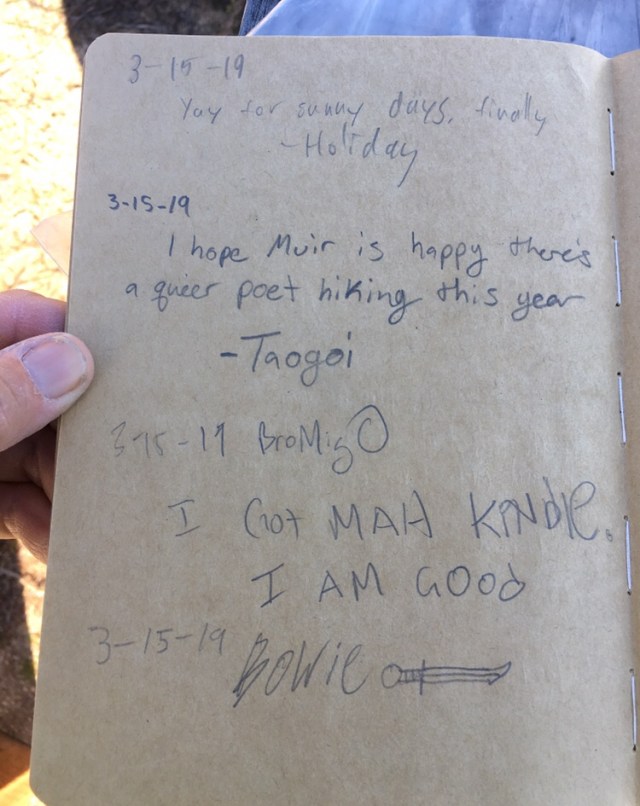 3-15-19
Yay for sunny days, finally
-Holiday
3-15-19
I hope Muir is happy there's
a queer poet hiking this year
-Taogoi
3-15-19 BroMigO
I Got MAH KINdlE.
I AM GOOd
3-15-19 BOWiE